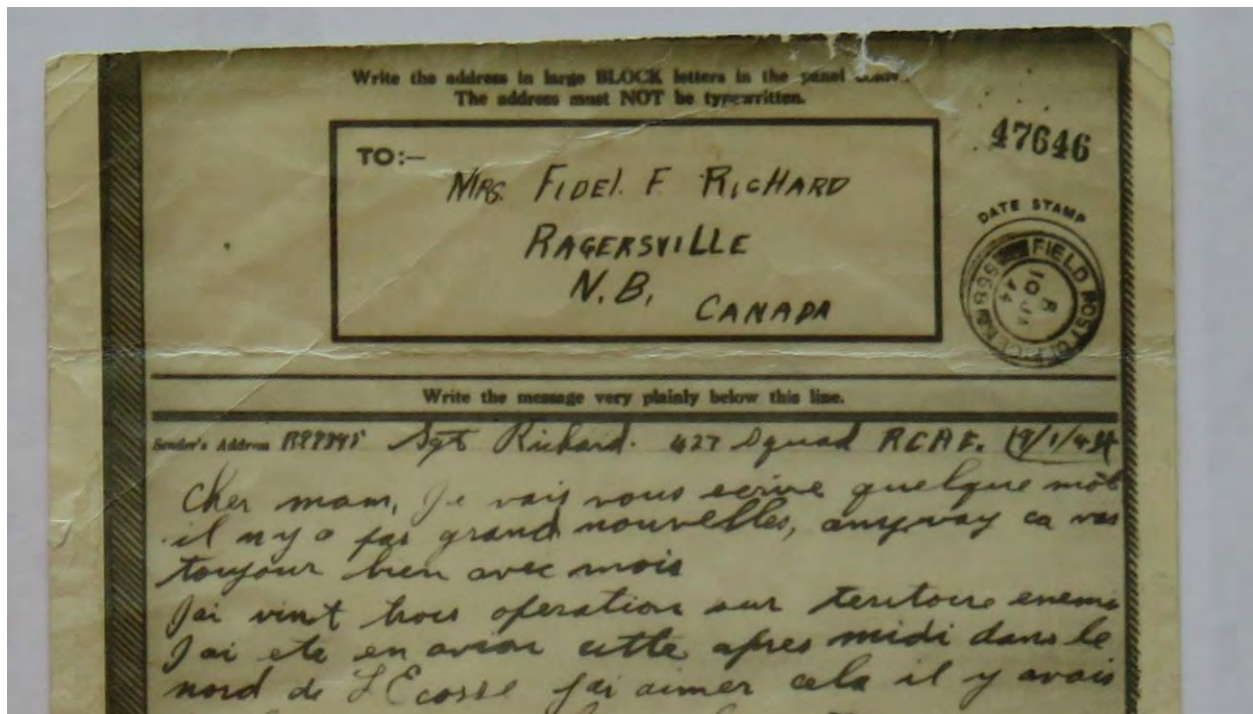 Write the address in large BLOCK letters in the panel
The address must NOT be typewritten.
47646
TO:—
MRS. FIDEL. F. RICHARD
RAGERSVILLE
N.B.
CANADA
DATE STAMP
FIELD POST OFFICE
10 JA
44
Write the message very plainly below this line.
Sender's Address Sgt Richard. 427 Squad RCAF. 9/1/44
Cher mam, Je vais vous ecrive quelque môt
il n y a pas grand nouvelles, anyway ca vas
toujour bien avec mois
J'ai vint trois operation sur teritoire enemi
J'ai ete en avion cette apres midi dans le
nord de L'Ecosse j'ai aimer cela il y avais